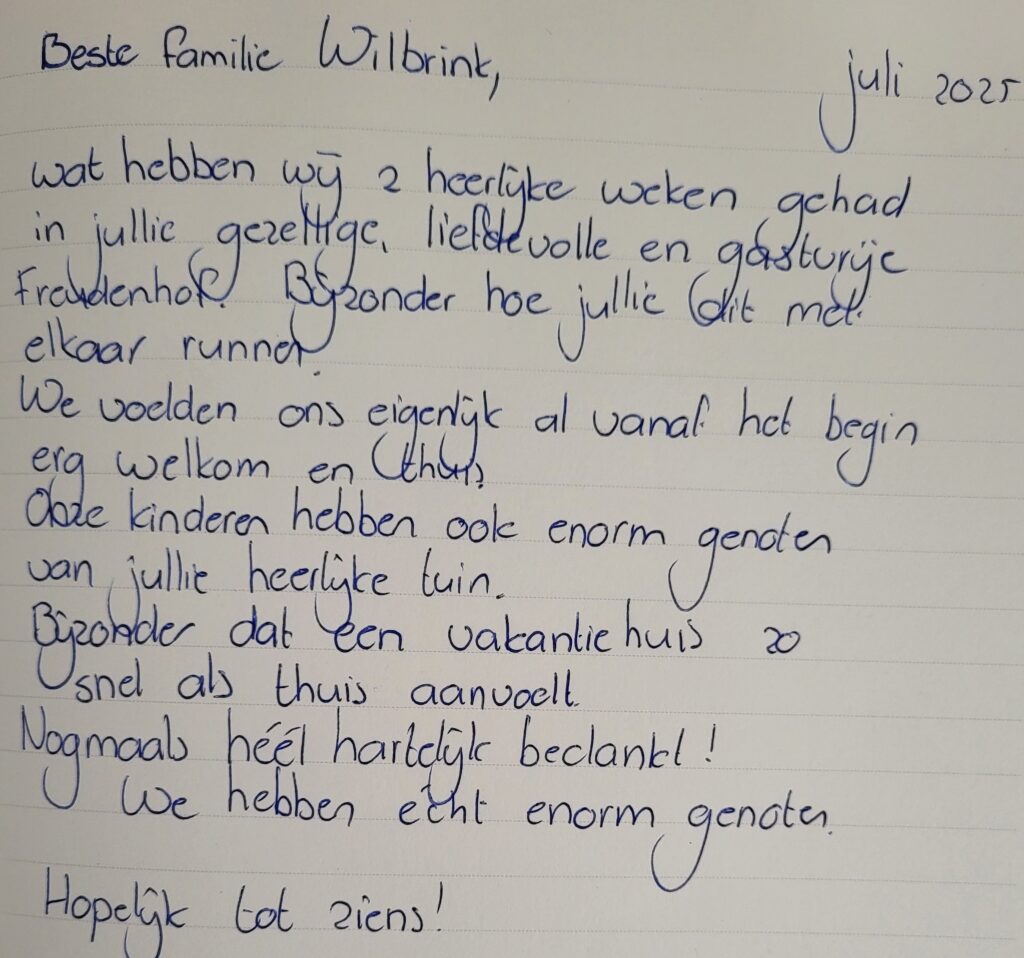 Beste familie Wilbrink,
juli 2025
wat hebben wij 2 heerlijke weken gehad
in jullie gezellige, liefdevolle en gastvrije
Freudenhof. Bijzonder hoe jullie dit met
elkaar runnen.
We voelden ons eigenlijk al vanaf het begin
erg welkom en thuis.
Onze kinderen hebben ook enorm genoten
van jullie heerlijke tuin.
Bijzonder dat een vakantiehuis zo
snel als thuis aanvoelt.
Nogmaals héél hartelijk bedankt!
We hebben echt enorm genoten.
Hopelijk tot ziens!